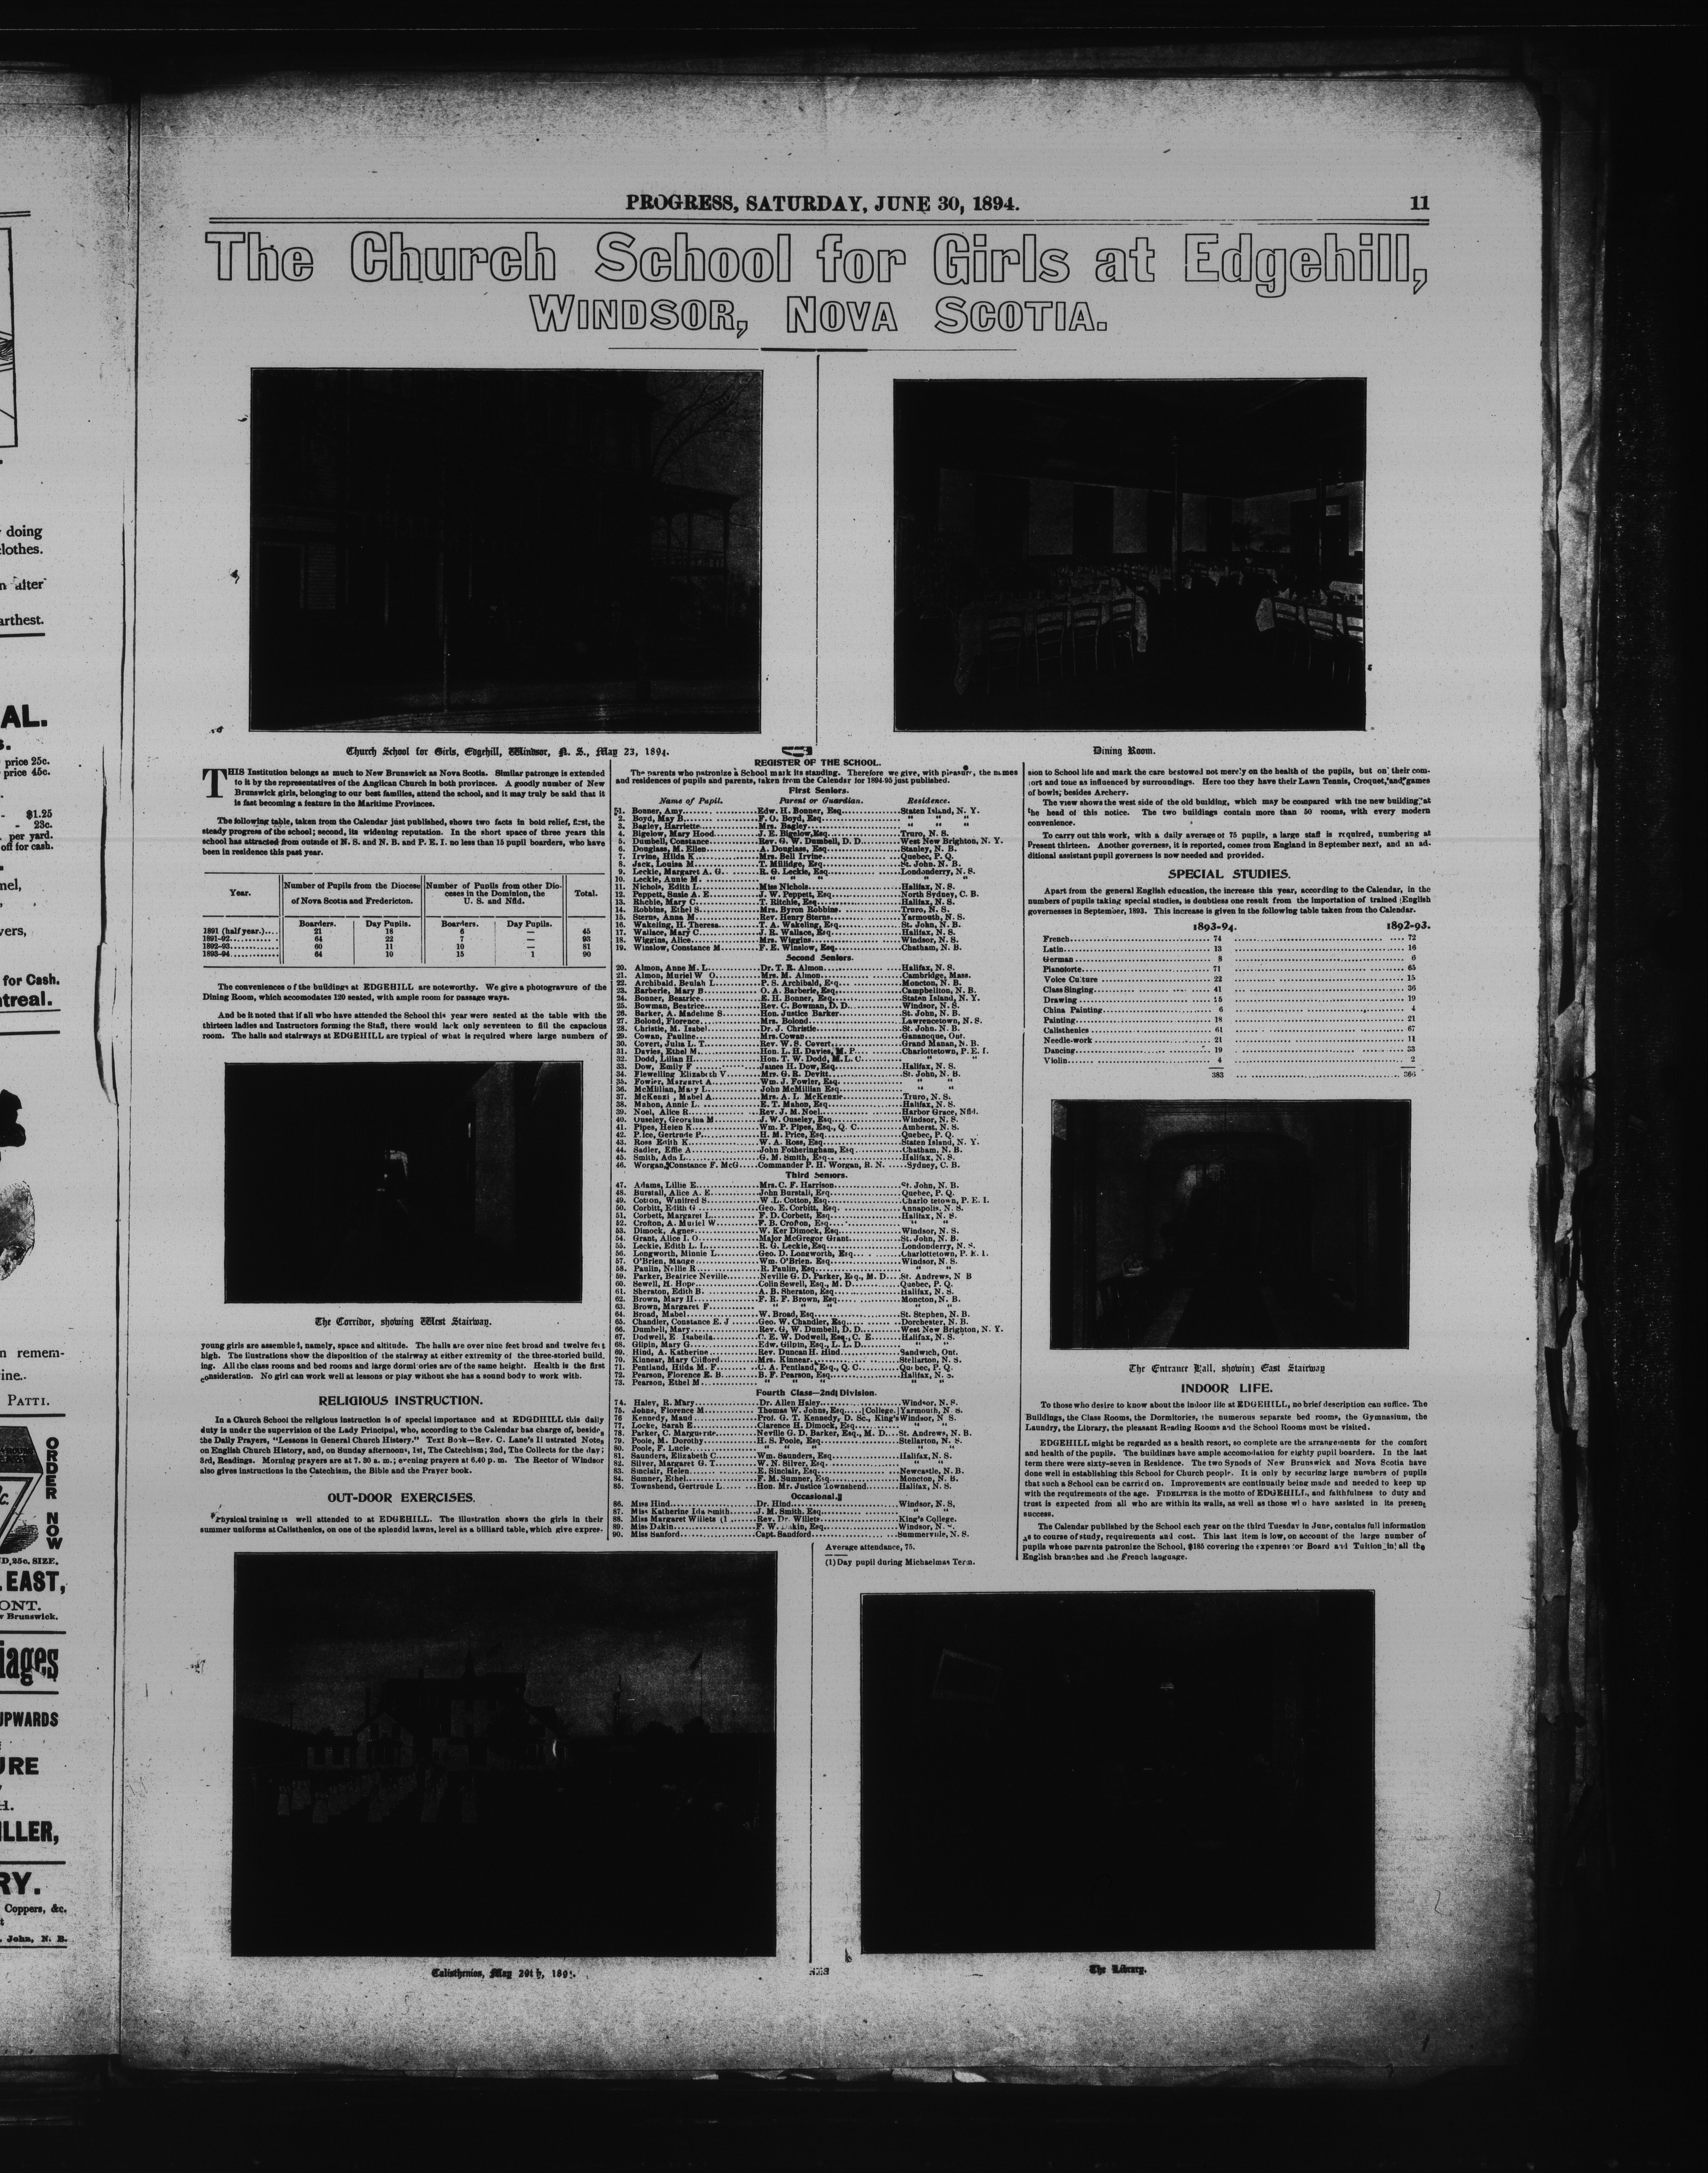 PROGRESS, SATURDAY, JUNE 30, 1894.
11
The Church School for Girls at Edgehill,
WINDSOR, NOVA SCOTIA.
Church School for Girls, Edgehill, Windsor, N. S., May 23, 1894.
Dining Room.
THIS Institution belongs as much to New Brunswick as Nova Scotia. Similar patronge is extended
to it by the representatives of the Anglican Church in both provinces. A goodly number of New
Brunswick girls, belonging to our best families, attend the school, and it may truly be said that it
is fast becoming a feature in the Maritime Provinces.
The following table, taken from the Calendar just published, shows two facts in bold relief, first, the
steady progress of the school; second, its widening reputation. In the short space of three years this
school has attracted from outside of N. S. and N. B. and P. E. I. no less than 15 pupil boarders, who have
been in residence this past year.
Year.
Number of Pupils from the Diocese of Nova Scotia and Fredericton.
Number of Pupils from other Dioceses in the Dominion, the U. S. and Nfld.
Total.
Boarders. Day Pupils. Boarders. Day Pupils.
1891 (half year.).... 21 18 6 — 45
1891-92............ 64 22 7 — 93
1892-93............ 60 11 10 — 81
1893-94............ 64 10 15 1 90
The conveniences of the buildings at EDGEHILL are noteworthy. We give a photogravure of the
Dining Room, which accomodates 120 seated, with ample room for passage ways.
And be it noted that if all who have attended the School this year were seated at the table with the
thirteen ladies and Instructors forming the Staff, there would lack only seventeen to fill the capacious
room. The halls and stairways at EDGEHILL are typical of what is required where large numbers of
The Corridor, showing West Stairway.
young girls are assembled, namely, space and altitude. The halls are over nine feet broad and twelve feet
high. The illustrations show the disposition of the stairway at either extremity of the three-storied build-
ing. All the class rooms and bed rooms and large dormitories are of the same height. Health is the first
consideration. No girl can work well at lessons or play without she has a sound body to work with.
RELIGIOUS INSTRUCTION.
In a Church School the religious instruction is of special importance and at EDGDHILL this daily
duty is under the supervision of the Lady Principal, who, according to the Calendar has charge of, besides
the Daily Prayers, "Lessons in General Church History." Text Book—Rev. C. Lane's Illustrated Notes
on English Church History, and, on Sunday afternoons, 1st, The Catechism; 2nd, The Collects for the day;
3rd, Readings. Morning prayers are at 7.30 a. m.; evening prayers at 6.40 p. m. The Rector of Windsor
also gives instructions in the Catechism, the Bible and the Prayer book.
OUT-DOOR EXERCISES.
Physical training is well attended to at EDGEHILL. The illustration shows the girls in their
summer uniforms at Calisthenics, on one of the splendid lawns, level as a billiard table, which give expres-
REGISTER OF THE SCHOOL.
The parents who patronize a School mark its standing. Therefore we give, with pleasure, the names
and residences of pupils and parents, taken from the Calendar for 1894-95 just published.
First Seniors.
Name of Pupil. Parent or Guardian. Residence.
1. Bonner, Amy........Edw. H. Bonner, Esq........Staten Island, N. Y.
2. Boyd, May B........F. O. Boyd, Esq........" " "
3. Bagley, Harriette........Mrs. Bagley........" " "
4. Bigelow, Mary Hood........J. E. Bigelow, Esq........Truro, N. S.
5. Dumbell, Constance........Rev. G. W. Dumbell, D. D........West New Brighton, N. Y.
6. Douglass, M. Ellen........A. Douglass, Esq........Stanley, N. B.
7. Irvine, Hilda K........Mrs. Bell Irvine........Quebec, P. Q.
8. Jack, Louisa M........T. Millidge, Esq........St. John, N. B.
9. Leckie, Margaret A. G........R. G. Leckie, Esq........Londonderry, N. S.
10. Leckie, Annie M........" " "........" "
11. Nichols, Edith L........Miss Nichols........Halifax, N. S.
12. Peppett, Susie A. E........J. W. Peppett, Esq........North Sydney, C. B.
13. Ritchie, Mary C........T. Ritchie, Esq........Halifax, N. S.
14. Robbins, Ethel S........Mrs. Byron Robbins........Truro, N. S.
15. Sterns, Anna M........Rev. Henry Sterns........Yarmouth, N. S.
16. Wakeling, H. Theresa........T. A. Wakeling, Esq........St. John, N. B.
17. Wallace, Mary C........J. R. Wallace, Esq........Halifax, N. S.
18. Wiggins, Alice........Mrs. Wiggins........Windsor, N. S.
19. Winslow, Constance M........F. E. Winslow, Esq........Chatham, N. B.
Second Seniors.
20. Almon, Anne M. L........Dr. T. R. Almon........Halifax, N. S.
21. Almon, Muriel W. O........Mrs. M. Almon........Cambridge, Mass.
22. Archibald, Beulah L........P. S. Archibald, Esq........Moncton, N. B.
23. Barberie, Mary B........O. A. Barberie, Esq........Campbellton, N. B.
24. Bonner, Beatrice........E. H. Bonner, Esq........Staten Island, N. Y.
25. Bowman, Beatrice........Rev. C. Bowman, D. D........Windsor, N. S.
26. Barker, A. Madeline S........Hon. Justice Barker........St. John, N. B.
27. Bolond, Florence........Mrs. Bolond........Lawrencetown, N. S.
28. Christie, M. Isabel........Dr. J. Christie........St. John. N. B.
29. Cowan, Pauline........Mrs. Cowan........Gananoque, Ont.
30. Covert, Julia L. T........Rev. W. S. Covert........Grand Manan, N. B.
31. Davies, Ethel M........Hon. L. H. Davies, M. P........Charlottetown, P. E. I.
32. Dodd, Lilian H........Hon. T. W. Dodd, M. L. C........" "
33. Dow, Emily F........James H. Dow, Esq........Halifax, N. S.
34. Flewelling Elizabeth V........Mrs. G. R. Devitt........St. John, N. B.
35. Fowler, Margaret A........Wm. J. Fowler, Esq........" "
36. McMillian, Mary L........John McMillian Esq........" "
37. McKenzi , Mabel A........Mrs. A. L. McKenzie........Truro, N. S.
38. Mahon, Annie L........E. T. Mahon, Esq........Halifax, N. S.
39. Noel, Alice R........Rev. J. M. Noel........Harbor Grace, Nfld.
40. Ouseley, Georgina M........J. W. Ouseley, Esq........Windsor, N. S.
41. Pipes, Helen K........Wm. P. Pipes, Esq., Q. C........Amherst, N. S.
42. Price, Gertrude P........H. M. Price, Esq........Quebec, P. Q.
43. Ross Edith K........W. A. Ross, Esq........Staten Island, N. Y.
44. Sadler, Effie A........John Fotheringham, Esq........Chatham, N. B.
45. Smith, Ada L........G. M. Smith, Esq........Halifax, N. S.
46. Worgan, Constance F. McG.....Commander P. H. Worgan, R. N......Sydney, C. B.
Third Seniors.
47. Adams, Lillie E........Mrs. C. F. Harrison........St. John, N. B.
48. Burstall, Alice A. E........John Burstall, Esq........Quebec, P. Q.
49. Cotton, Winifred S........W .L. Cotton, Esq........Charlottetown, P. E. I.
50. Corbitt, Edith G........Geo. E. Corbitt, Esq........Annapolis, N. S.
51. Corbett, Margaret L........F. D. Corbett, Esq........Halifax, N. S.
52. Crofton, A. Muriel W........F. B. Crofton, Esq........" "
53. Dimock, Agnes........W. Ker Dimock, Esq........Windsor, N. S.
54. Grant, Alice I. O........Major McGregor Grant........St. John, N. B.
55. Leckie, Edith L. L........R. G. Leckie, Esq........Londonderry, N. S.
56. Longworth, Minnie L........Geo. D. Longworth, Esq........Charlottetown, P. E. I.
57. O'Brien, Madge........Wm. O'Brien. Esq........Windsor, N. S.
58. Paulin, Nellie R........R. Paulin, Esq........" "
59. Parker, Beatrice Neville........Neville G. D. Parker, Esq., M. D....St. Andrews, N B
60. Sewell, H. Hope........Colin Sewell, Esq., M. D........Quebec, P. Q.
61. Sheraton, Edith B........A. B. Sheraton, Esq........Halifax, N. S.
62. Brown, Mary H........F. R. F. Brown, Esq........Moncton, N. B.
63. Brown, Margaret F........" " "........" "
64. Broad, Mabel........W. Broad, Esq........St. Stephen, N. B.
65. Chandler, Constance E. J........Geo. W. Chandler, Esq........Dorchester, N. B.
66. Dumbell, Mary........Rev. G. W. Dumbell, D. D........West New Brighton, N. Y.
67. Dodwell, E Isabella........C. E. W. Dodwell, Esq., C. E........Halifax, N. S.
68. Gilpin, Mary G........Edw. Gilpin, Esq., L. L. D........" "
69. Hind, A. Katherine........Rev. Duncan H. Hind........Sandwich, Ont.
70. Kinnear, Mary Clifford........Mrs. Kinnear........Stellarton, N. S.
71. Pentland, Hilda M. F........C. A. Pentland, Esq., Q. C........Quebec, P. Q.
72. Pearson, Florence E. B........B. F. Pearson, Esq........Halifax, N. S.
73. Pearson, Ethel M........" "........" "
Fourth Class—2nd Division.
74. Haley, R. Mary........Dr. Allen Haley........Windsor, N. S.
75. Johns, Florence M........Thomas W. Johns, Esq.....[College.] Yarmouth, N. S.
76 Kennedy, Maud........Prof. G. T. Kennedy, D. Sc., King's Windsor, N S.
77. Locke, Sarah E........Clarence H. Dimock, Esq........" "
78. Parker, C. Marguerite........Neville G. D. Barker, Esq., M. D....St. Andrews, N. B.
79. Poole, M. Dorothy........H. S. Poole, Esq........Stellarton, N. S.
80. Poole, F. Lucie........" " "........" "
81. Saunders, Elizabeth C........Wm. Saunders, Esq........Halifax, N. S.
82. Silver, Margaret G. T........W. N. Silver, Esq........" "
83. Sinclair, Helen........E. Sinclair, Esq........Newcastle, N. B.
84. Sumner, Ethel........F. M. Sumner, Esq........Moncton, N. B.
85. Townshend, Gertrude L........Hon. Mr. Justice Townshend........Halifax, N. S.
Occasional.
86. Miss Hind........Dr. Hind........Windsor, N. S,
87. Miss Katherine Ida Smith........J. M. Smith. Esq........" "
88. Miss Margaret Willets (1........Rev. Dr. Willets........King's College.
89. Miss Dakin........F. W. Dakin, Esq........Windsor, N. S.
90. Miss Sanford........Capt. Sandford........Summerville, N. S.
Average attendance, 75.
(1) Day pupil during Michaelmas Term.
sion to School life and mark the care bestowed not merely on the health of the pupils, but on their com-
fort and tone as influenced by surroundings. Here too they have their Lawn Tennis, Croquet, and games
of bowls; besides Archery.
The view shows the west side of the old building, which may be compared with the new building at
the head of this notice. The two buildings contain more than 50 rooms, with every modern
convenience.
To carry out this work, with a daily average of 75 pupils, a large staff is required, numbering at
Present thirteen. Another governess, it is reported, comes from England in September next, and an ad-
ditional assistant pupil governess is now needed and provided.
SPECIAL STUDIES.
Apart from the general English education, the increase this year, according to the Calendar, in the
numbers of pupils taking special studies, is doubtless one result from the importation of trained English
governesses in September, 1893. This increase is given in the following table taken from the Calendar.
1893-94. 1892-93.
French........ 74 ........ 72
Latin........ 13 ........ 16
German ........ 8 ........ 6
Pianoforte........ 71 ........ 65
Voice Culture ........ 22 ........ 15
Class Singing........ 41 ........ 36
Drawing ........ 45 ........ 19
China Painting........ 6 ........ 4
Painting........ 18 ........ 21
Calisthenics ........ 61 ........ 67
Needle-work ........ 21 ........ 11
Dancing........ 19 ........ 33
Violin........ 4 ........ 2
383 ........ 366
The Entrance Hall, showing East Stairway
INDOOR LIFE.
To those who desire to know about the indoor life at EDGEHILL, no brief description can suffice. The
Buildings, the Class Rooms, the Dormitories, the numerous separate bed rooms, the Gymnasium, the
Laundry, the Library, the pleasant Reading Rooms and the School Rooms must be visited.
EDGEHILL might be regarded as a health resort, so complete are the arrangements for the comfort
and health of the pupils. The buildings have ample accomodation for eighty pupil boarders. In the last
term there were sixty-seven in Residence. The two Synods of New Brunswick and Nova Scotia have
done well in establishing this School for Church people. It is only by securing large numbers of pupils
that such a School can be carried on. Improvements are continually being made and needed to keep up
with the requirements of the age. FIDELITER is the motto of EDGEHILL, and faithfulness to duty and
trust is expected from all who are within its walls, as well as those who have assisted in its present
success.
The Calendar published by the School each year on the third Tuesday in June, contains full information
as to course of study, requirements and cost. This last item is low, on account of the large number of
pupils whose parents patronize the School, $185 covering the expenses for Board and Tuition in all the
English branches and the French language.
Calisthenics, May 29th, 189
The Library.
doing
lothes.
arthest.
AL.
price 25c.
price 45c.
$1.25
23c.
per yard.
off for cash.
nel,
vers,
for Cash.
treal.
n remem-
ine.
PATTI.
ORDER NOW
D, 25c. SIZE.
EAST,
ONT.
Brunswick.
iages
UPWARDS
URE
H.
ILLER,
RY.
Coppers, &c.
John, N. B.